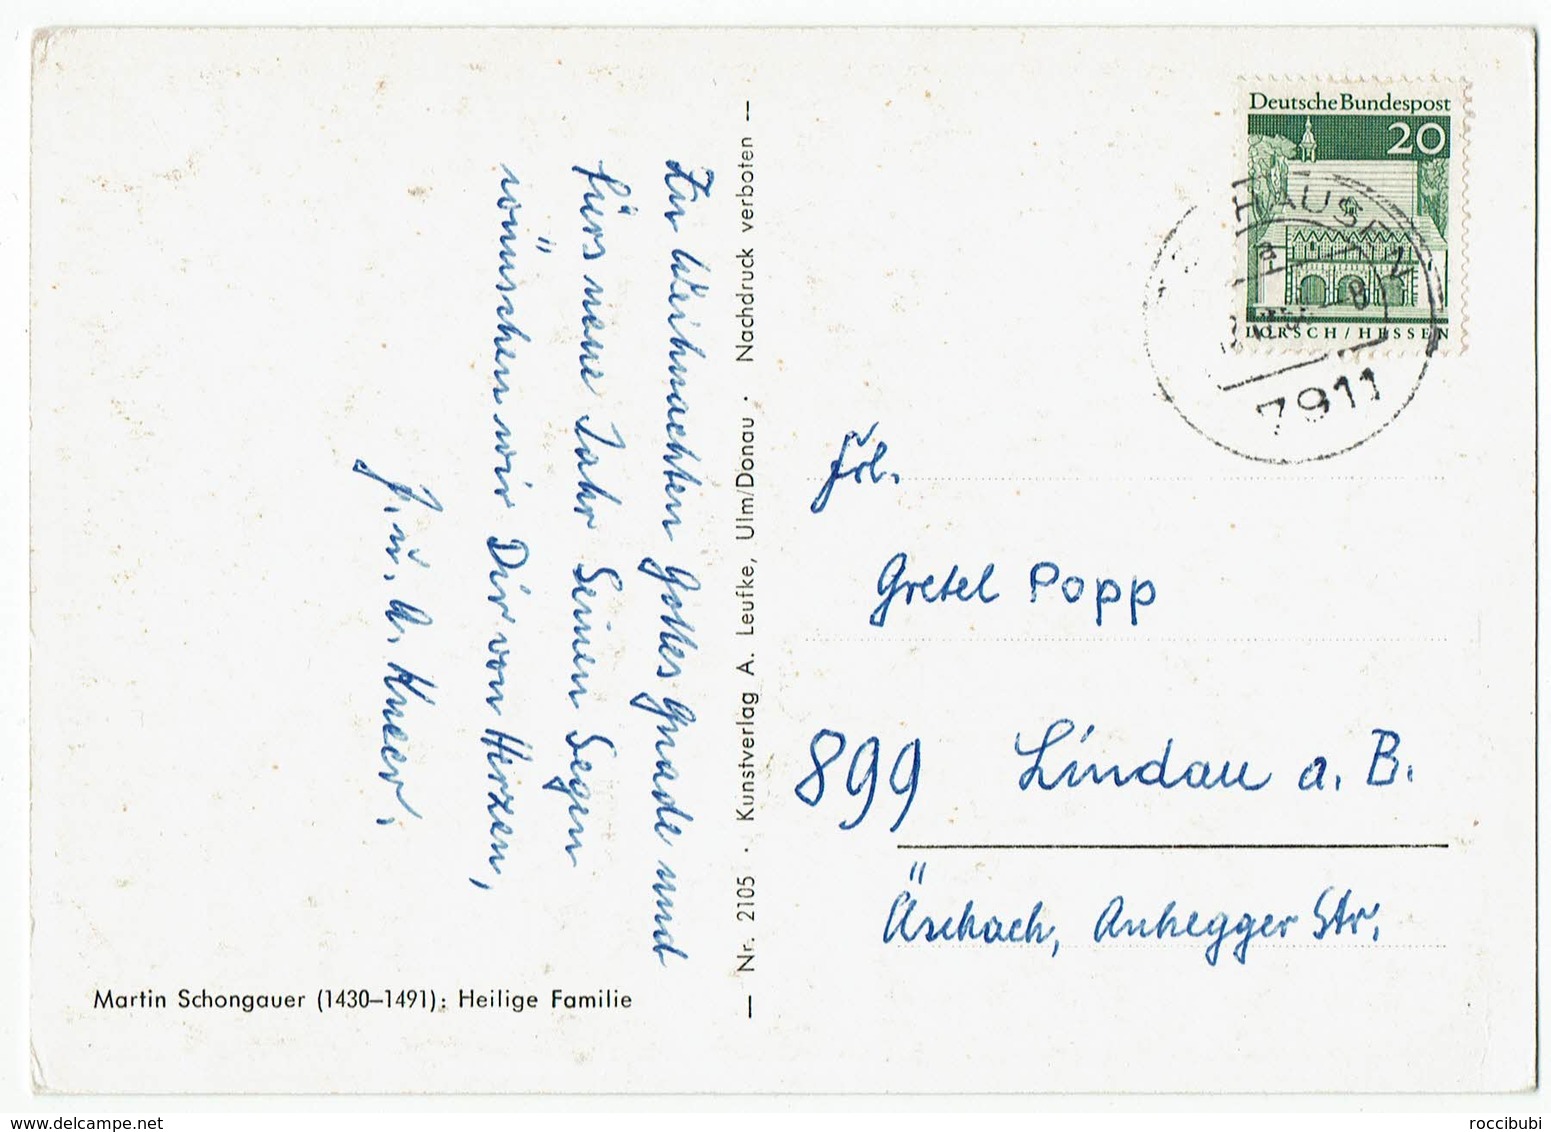 Zur Weihnachten Gottes Gnade und
fürs neue Jahr Seinen Segen
wünschen wir Dir von Herzen,
J. u. A. Kneer.
Martin Schongauer (1430–1491): Heilige Familie
— Nr. 2105 · Kunstverlag A. Leufke, Ulm/Donau · Nachdruck verboten —
Deutsche Bundespost
20
LORSCH / HESSEN
HAUSEN
a
7911
Frl.
Gretel Popp
899 Lindau a. B.
Äschach, Anhegger Str.
www.delcampe.net
roccibubi